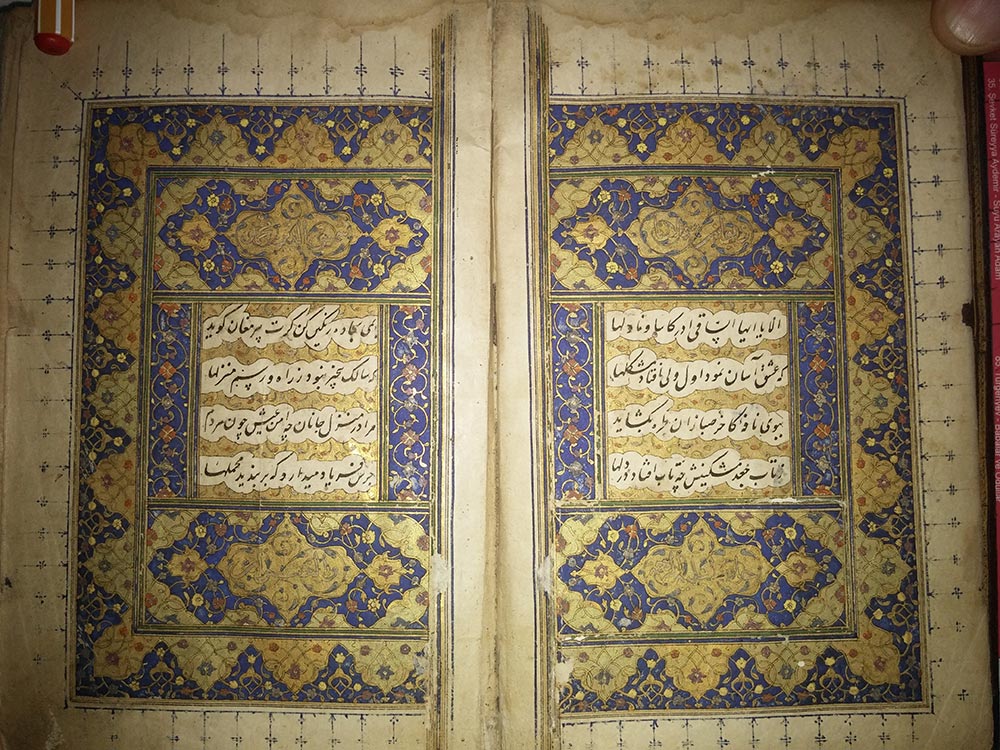 الا یا ایها الساقی ادر کاسا و ناولها
که عشق آسان نمود اول ولی افتاد مشکلها
ببوی نافه کاخر صبا زان طره بکشاید
ز تاب جعد مشکینش چه تاب افتاد در دلها
بمی سجاده رنگین کن گرت پیر مغان گوید
که سالک بیخبر نبود ز راه و رسم منزلها
مرا در منزل جانان چه امن عیش چون هر دم
جرس فریاد میدارد که بربندید محملها
35. Şevket Süreyya Aydemir - Suyu Arayan Adam
Turgenyev - Babalar